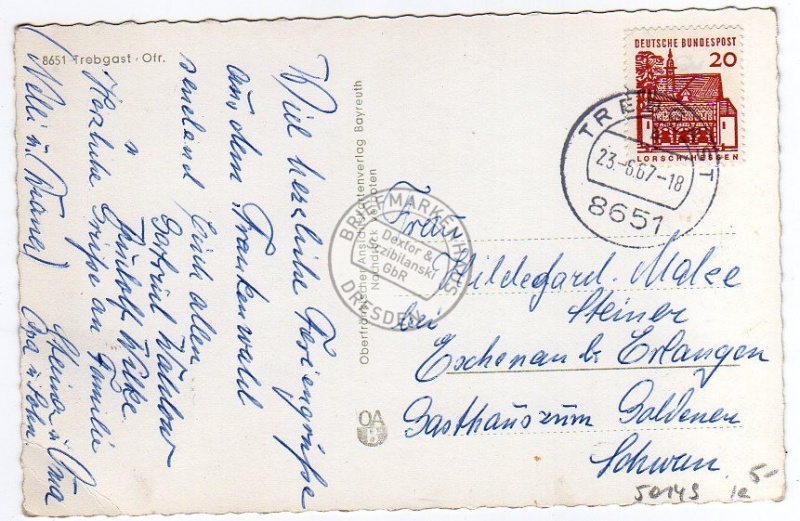 8651 Trebgast - Ofr.
Viel herzliche Feriengrüße
aus dem Frankenwald
senden Euch allen
Gertrud
u
Herzliche Grüße an Familie
Steiner u. Oma
(Nelli u.
Oberfränkischer Ansichtskartenverlag Bayreuth
Nachdruck verboten
OA
DEUTSCHE BUNDESPOST
20
LORSCH/HESSEN
TREBGAST
23.-6.67-18
8651
BRIEFMARKENHAUS
Dextor &
Przibilanski
GbR
DRESDEN
Frau
Hildegard
bei Steiner
Eschenau b. Erlangen
Gasthaus zum Goldenen
Schwan.
5-